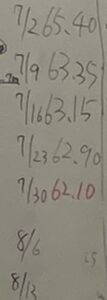 7/2 65.40
7/9 63.35
7/16 63.15
7/23 62.90
7/30 62.10
8/6
8/13